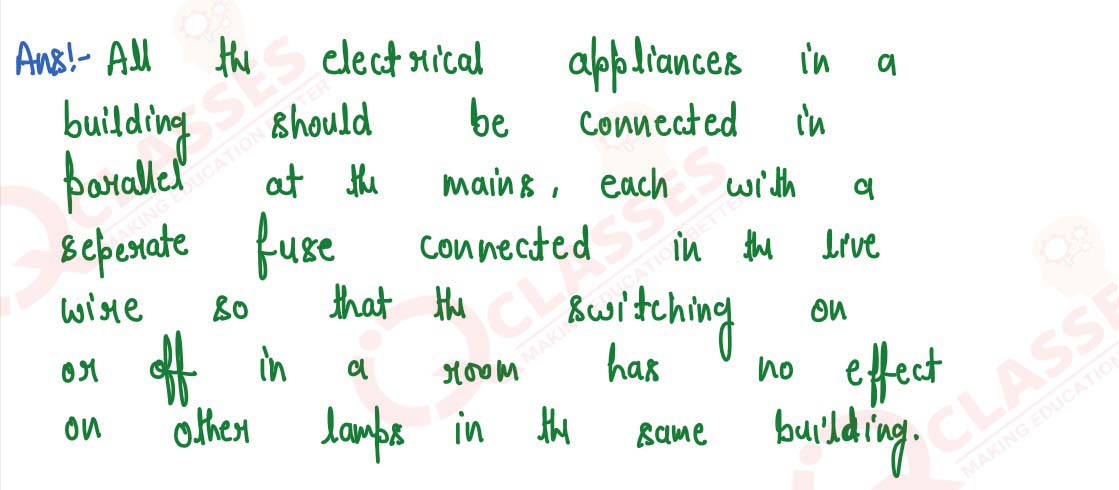 Ans:- All the electrical appliances in a
building should be connected in
parallel at the mains, each with a
seperate fuse connected in the live
wire so that the switching on
or off in a room has no effect
on other lamps in the same building.
CLASSES
MAKING EDUCATION BETTER
CLASSES
MAKING EDUCATION BETTER
CLASSES
MAKING EDUCATION